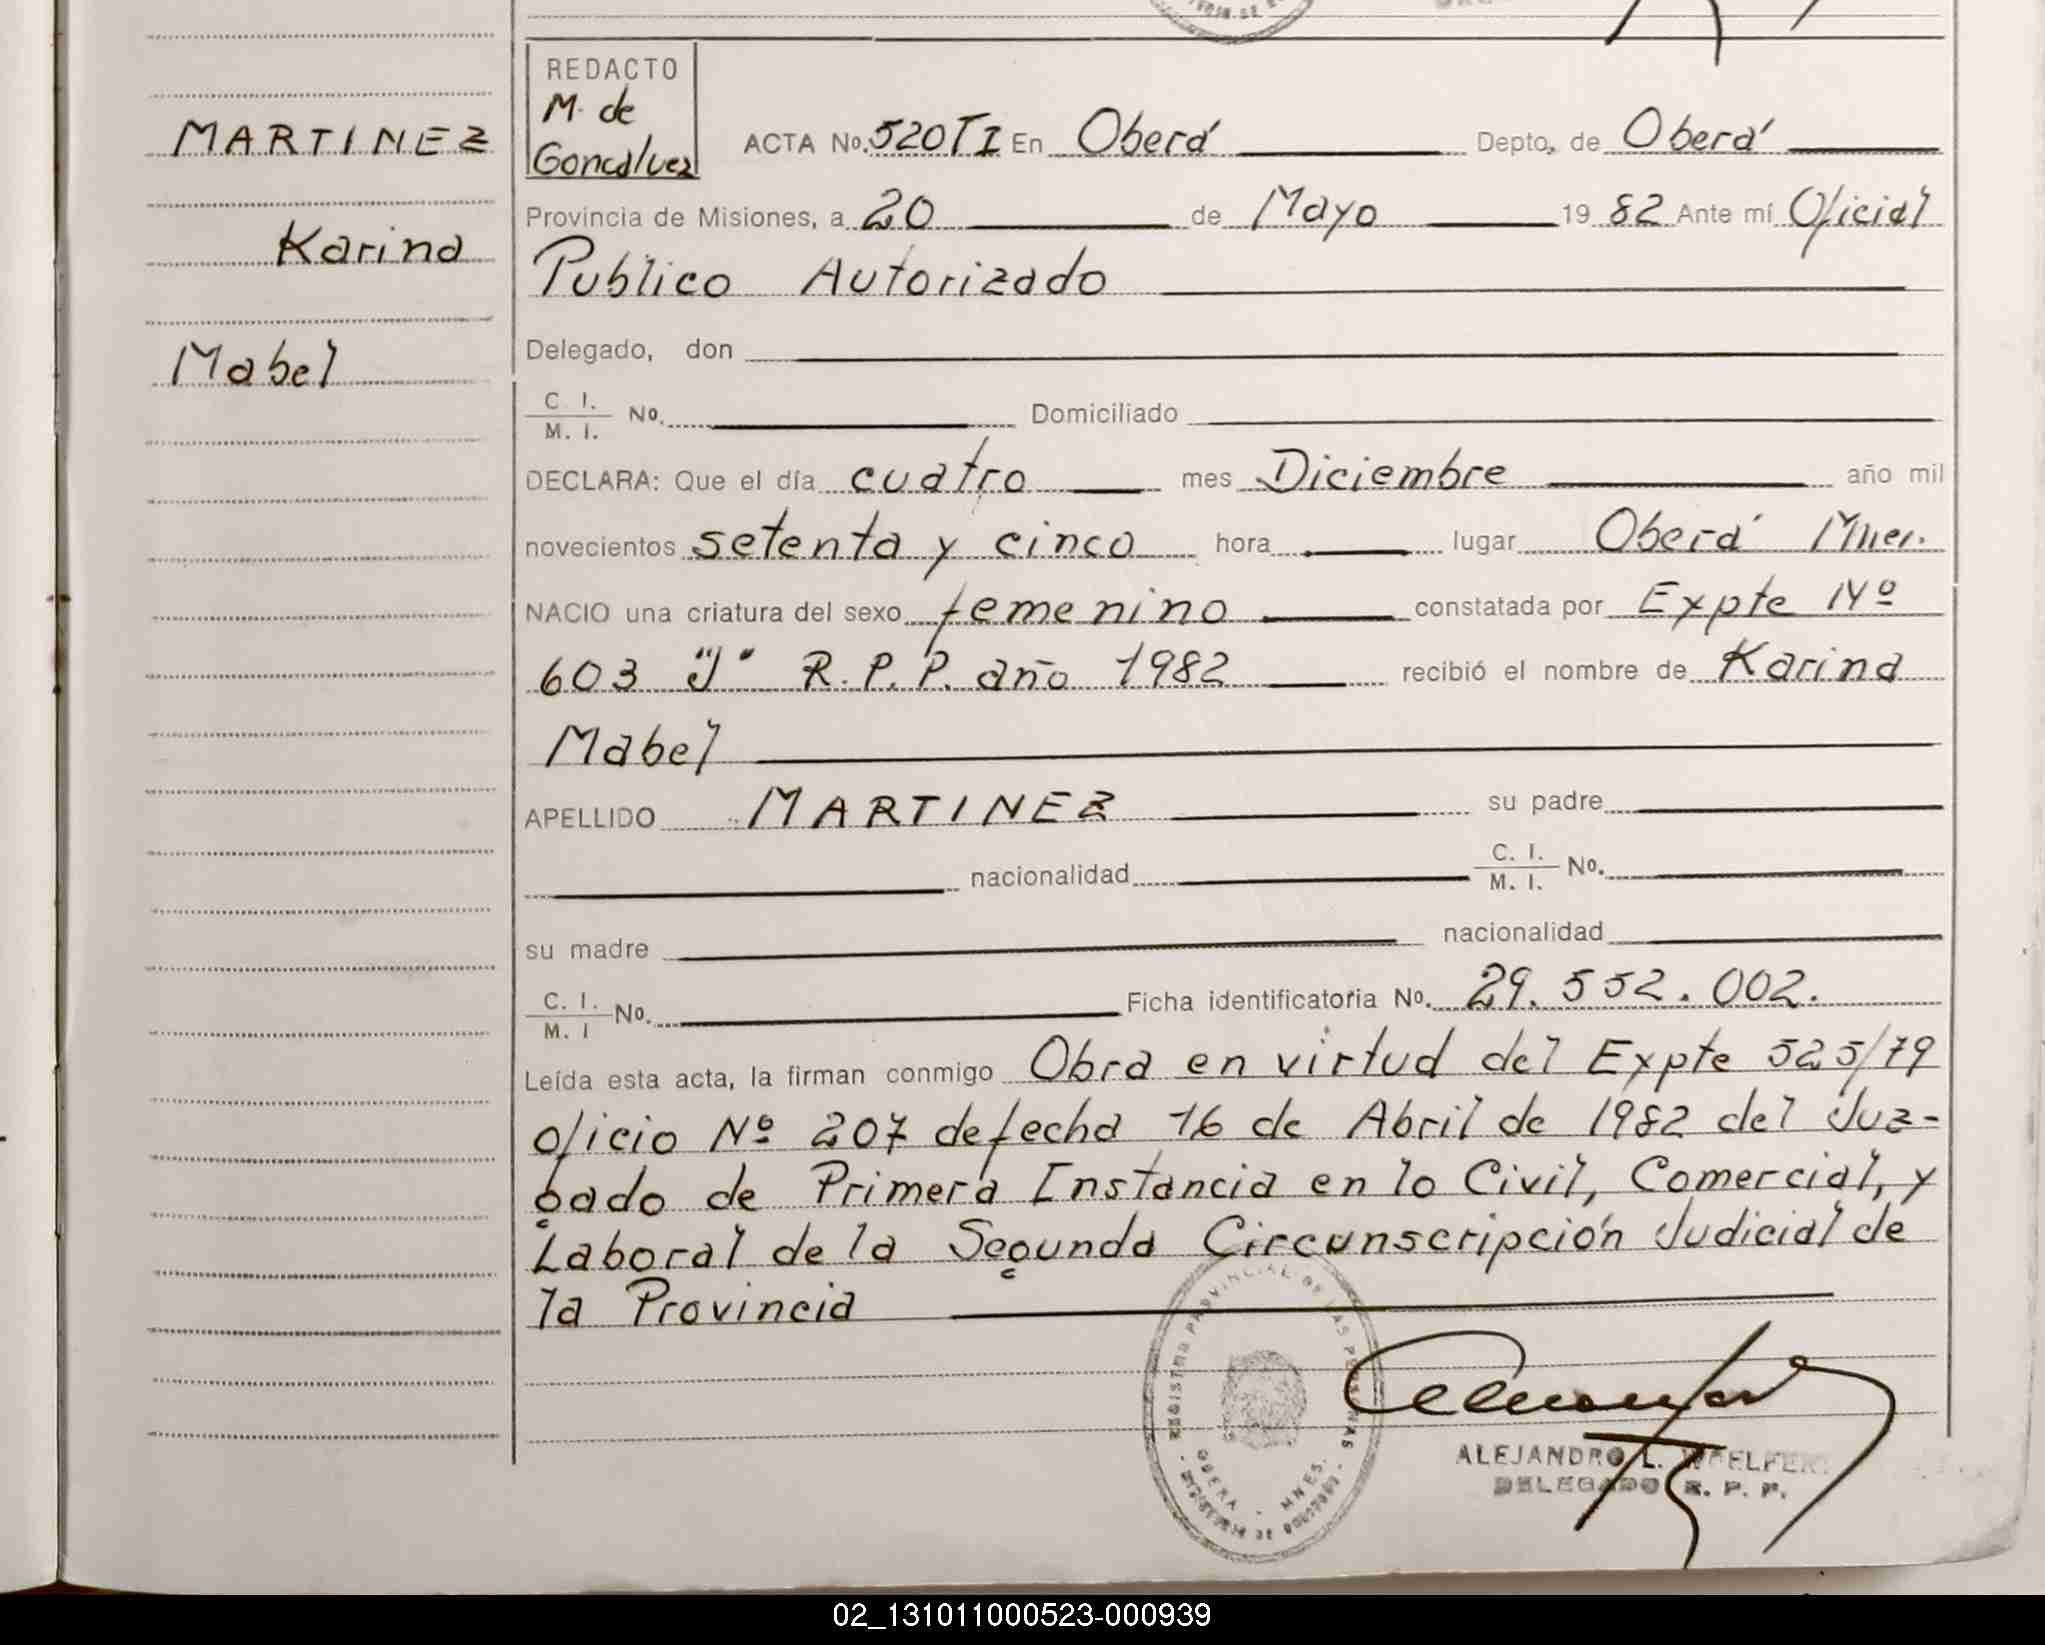 MARTINEZ
Karina
Mabel
REDACTO
M. de
Goncalvez
ACTA No. 520 TI En Oberá Depto. de Oberá
Provincia de Misiones, a 20 de Mayo 19 82 Ante mí Oficial
Publico Autorizado
Delegado, don
C. I. / M. I. No. Domiciliado
DECLARA: Que el día cuatro mes Diciembre año mil
novecientos setenta y cinco hora lugar Oberá
NACIO una criatura del sexo femenino constatada por Expte Nº
603 "J" R.P.P. año 1982 recibió el nombre de Karina
Mabel
APELLIDO MARTINEZ su padre
nacionalidad C. I. / M. I. No.
su madre nacionalidad
C. I. / M. I No. Ficha identificatoria No. 29.552.002.
Leída esta acta, la firman conmigo Obra en virtud del Expte 525/79
oficio Nº 207 de fecha 16 de Abril de 1982 del Juz-
gado de Primera Instancia en lo Civil, Comercial, y
Laboral de la Segunda Circunscripción Judicial de
la Provincia
REGISTRO PROVINCIAL DE LAS PERSONAS
OBERA - MNES.
ALEJANDRO L. WOELFERT
DELEGADO R. P. P.
02_131011000523-000939